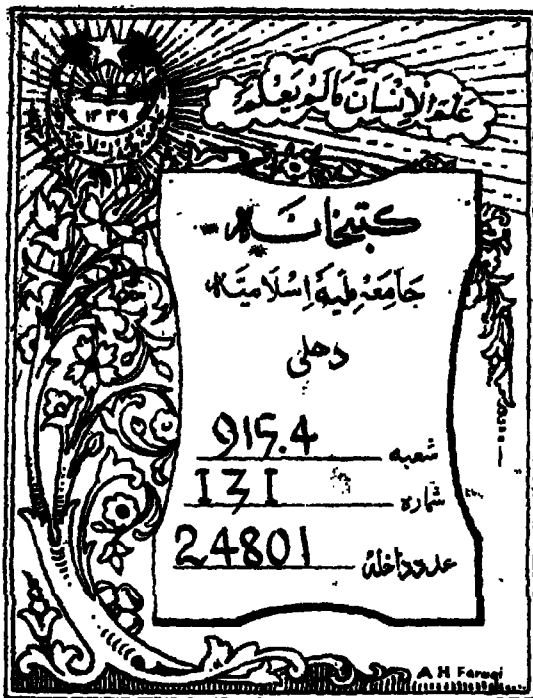 علم الانسان مالم يعلم
١٣٣٩
كتبخانہ
جامعہ ملیہ اسلامیہ
دهلی
شعبہ 915.4
شمارہ I3I
عدد داخلہ 24801
A H Faruqi